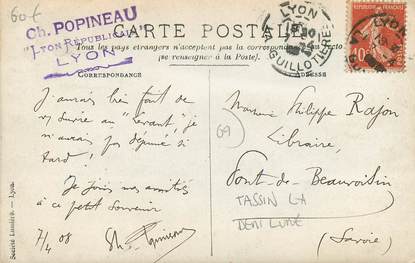 60 €
Ch. POPINEAU
"LYON RÉPUBLICAIN"
LYON
CARTE POSTALE
Tous les pays étrangers n'acceptent pas la correspondance au recto
(se renseigner à la Poste).
LYON
GUILLOTIÈRE
10
CORRESPONDANCE
ADRESSE
J'aurais bien fait de
m'y suivre au "levant", je
n'aurais pas déjeuné si
tard !
Je joins mes amitiés
à ce petit souvenir
7/4 08 Ch. Popineau
69
Monsieur Philippe Rajon
Libraire,
Pont-de-Beauvoisin
TASSIN LA
DEMI LUNE
(Savoie)
Société Lumière. — Lyon.